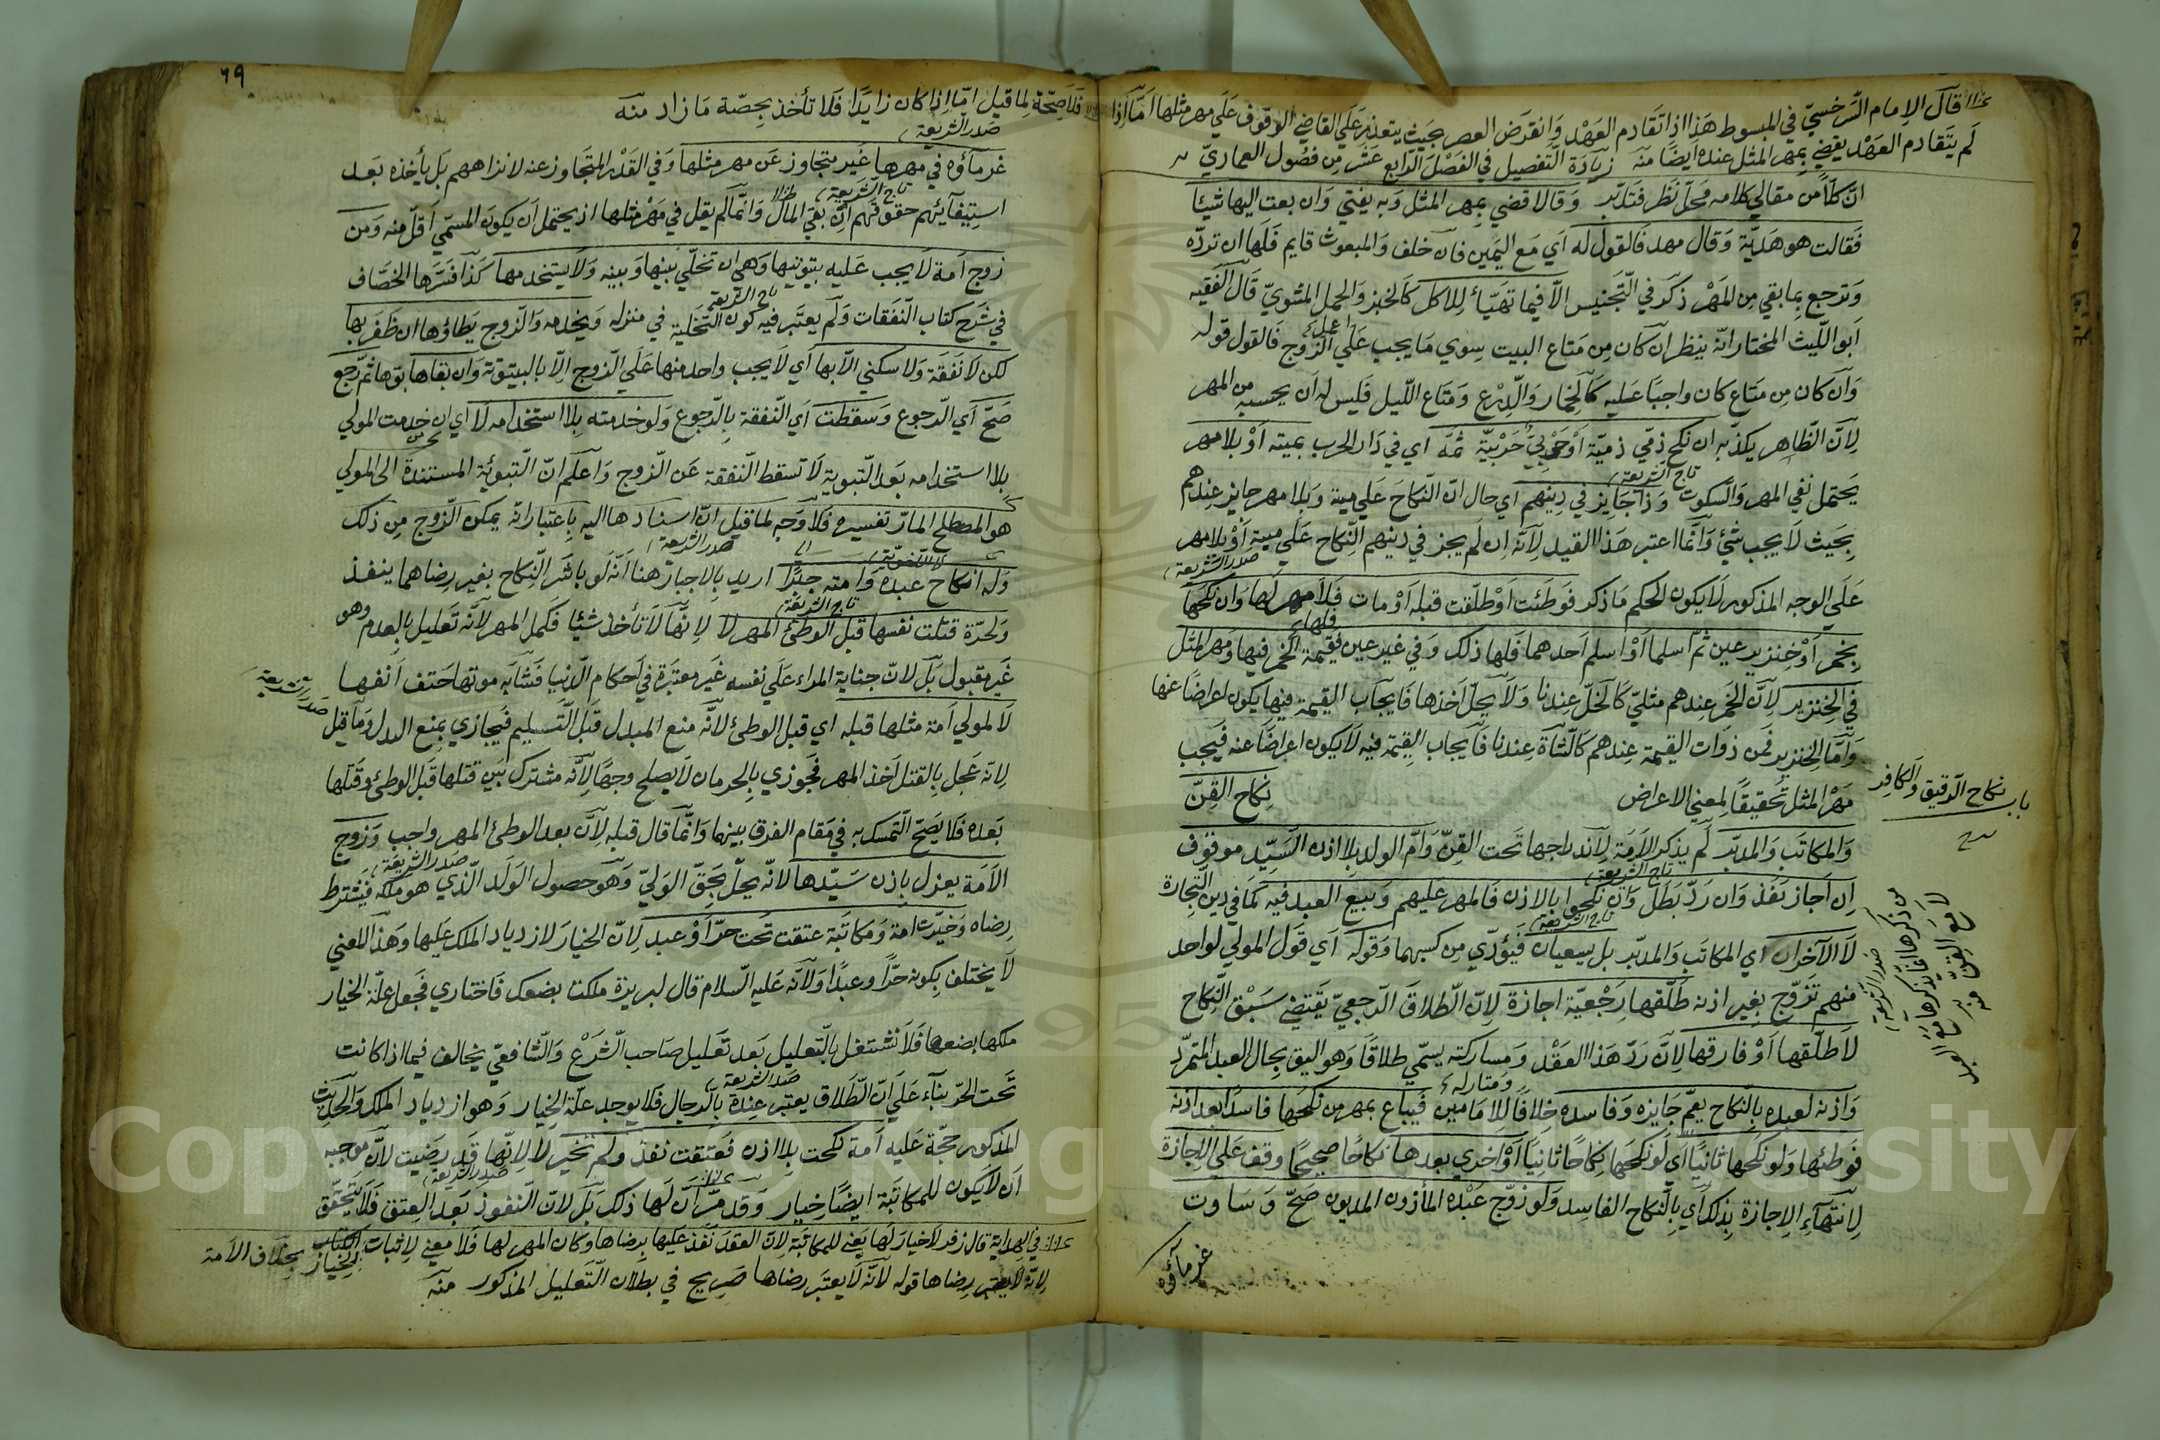 قال الإمام السرخسي في المبسوط هذا إذا تقادم العهد وانقرض العصر بحيث يتعذر على القاضي الوقوف على مهر مثلها أما إذا
لم يتقادم العهد يقضي بمهر المثل عنده أيضا منه زيادة التفصيل في الفصل الرابع عشر من فصول العمادي
ان كلا من مقالي كلامه محل نظر فتدبر وقالا قضي بمهر المثل وبه يفتي وان بعث اليها شيئا
فقالت هو هدية وقال مهر فالقول له اي مع اليمين فان حلف والمبعوث قايم فلها ان ترده
وترجع بما بقي من المهر ذكره في التجنيس الا فيما تهيأ للاكل كالخبز والحمل المشوي قال الفقيه
ابو الليث المختار انه ينظر ان كان من متاع البيت سوي ما يجب علي الزوج فالقول قوله
وان كان من متاع كان واجبا عليه كالخمار والدرع ومتاع الليل فليس له ان يحسبه من المهر
لان الظاهر يكذبه ان نكح ذمي ذمية او حربي حربية ثمه اي في دار الحرب بميتة او بلا مهر
تاج الشريعة
يحتمل نفي المهر والسكوت وذا جايز في دينهم اي حال ان النكاح علي ميتة وبلا مهر جايز عندهم
بحيث لا يجب شئ وانما اعتبر هذا القيد لانه ان لم يجز في دينهم النكاح علي ميتة او بلا مهر
صدر الشريعة
علي الوجه المذكور لا يكون الحكم ما ذكر فوطئت او طلقت قبله او مات فلا مهر لها وان نكحها
بخمر او خنزير عين ثم اسلما او اسلم احدهما فلها ذلك وفي غير عين فلها قيمة الخمر فيها ومهر المثل
في الخنزير لان الخمر عندهم مثلي كالخل عندنا ولا يحل اخذها فايجاب القيمة فيها يكون اعراضا عنها
واما الخنزير فمن ذوات القيمة عندهم كالشاة عندنا فايجاب القيمة فيه لا يكون اعراضا عنه فيجب
مهر المثل تحقيقا لمعني الاعراض نكاح القن
باب نكاح الرقيق والكافر
والمكاتب والمدبر لم يذكر الامة لاندراجها تحت القن وام الولد بلا اذن السيد موقوف
تاج الشريعة
ان اجاز نفذ وان رد بطل وان نكحوا بالاذن فالمهر عليهم وبيع العبد فيه كما في دين التجارة
تاج الشريعة
لا الآخران اي المكاتب والمدبر بل يسعيان فيؤدي من كسبهما وقوله اي قول المولي لواحد
منهم تزوج بغير اذنه طلقها رجعية اجازة لان الطلاق الرجعي يقتضي سبق النكاح
صدر الشريعة
لا طلقها او فارقها لان رد هذا العقد ومتاركته يسمي طلاقا وهو اليق بحال العبد المتمرد
واذنه لعبده بالنكاح يعم جايزه وفاسده خلافا للامامين فيباع بمهر من نكحها فاسدا بعد اذنه
فوطئها ولو نكحها ثانيا اي لو نكحها نكاحا ثانيا او اخري بعدها نكاحا صحيحا وقف علي الاجازة
لانتهاء الاجازة بذلك اي بالنكاح الفاسد ولو زوج عبده المأذون المديون صح وساوت
غرمآؤه
٦٩
فلا صحة لما قيل اما اذا كان زايدا فلا تأخذ بحصة ما زاد منه
صدر الشريعة
غرمآؤه في مهرها غير متجاوز عن مهر مثلها وفي القدر المتجاوز عنه لا تزاحمهم بل يأخذه بعد
تاج الشريعة
استيفآئهم حقوقهم ان بقي المال وانما لم يقل في مهر مثلها اذ يحتمل ان يكون المسمي اقل منه ومن
زوج امة لا يجب عليه تبوئتها وهي ان تخلي بينها وبينه ولا يستخدمها كذا فسرها الخصاف
تاج الشريعة
في شرح كتاب النفقات ولم يعتبر فيه كون التخلية في منزله ويخدمه والزوج يطاؤها ان ظفر بها
لكن لا نفقة ولا سكني الا بها اي لا يجب واحد منها علي الزوج الا بالبيتوتة وان بوأها ثم رجع
صح اي الرجوع وسقطت اي النفقة بالرجوع ولو خدمته بلا استخدامه لا اي ان خدمت المولي
بلا استخدامه بعد التبوية لا تسقط النفقة عن الزوج واعلم ان التبوئية المستندة الى المولي
هو المصطلح المار تفسيره فلا وجه لما قيل ان اسنادها اليه باعتبار انه يمكن الزوج من ذلك
صدر الشريعة
وله انكاح عبده وامته جبرا اريد بالاجبار هنا انه لو باشر النكاح بغير رضاهما ينفذ
تاج الشريعة
ولحرة قتلت نفسها قبل الوطئ المهر لا لانها لا تأخذ شيئا فكمل المهر لانه تعليل بالعدم وهو
غير مقبول بل لان جناية المراء علي نفسه غير معتبرة في احكام الدنيا فشابه موتها حتف انفها
صدر الشريعة
لا لمولي امة مثلها قبله اي قبل الوطئ لانه منع المبدل قبل التسليم فيجازي بمنع البدل وما قيل
لانه عجل بالقتل اخذ المهر فجوزي بالحرمان لا يصلح وجها لانه مشترك بين قتلها قبل الوطئ وقتلها
بعده فلا يصح التمسك به في مقام الفرق بينهما وانما قال قبله لان بعد الوطئ المهر واجب وزوج
صدر الشريعة
الامة يعزل باذن سيدها لانه يخل بحق الولي وهو حصول الولد الذي هو ملكه فيشترط
رضاه وخيرت امة ومكاتبة عتقت تحت حر او عبد لان الخيار لازدياد الملك عليها وهذا المعني
لا يختلف بكونه حرا وعبدا ولانه عليه السلام قال لبريرة ملكت بضعك فاختاري فجعل علة الخيار
ملكها بضعها فلا نشتغل بالتعليل بعد تعليل صاحب الشرع والشافعي يخالف فيما اذا كانت
صدر الشريعة
تحت الحر بناء علي ان الطلاق يعتبر عنده بالرجال فلا يوجد علة الخيار وهو ازدياد الملك والحديث
المذكور حجة عليه امة نكحت بلا اذن فعتقت نفذ ولم تخير لا لانها قد رضيت لان موجبه
صدر الشريعة
ان لا يكون للمكاتبة ايضا خيار وقد مر ان لها ذلك بل لان النفوذ بعد العتق فلا يتحقق
في الهداية قال زفر لا خيار لها يعني للمكاتبة لان العقد نفذ عليها برضاها وكان المهر لها فلا معني لاثبات الخيار بخلاف الامة
لانه لا يعتبر رضاها قوله لانه لا يعتبر رضاها صريح في بطلان التعليل المذكور منه